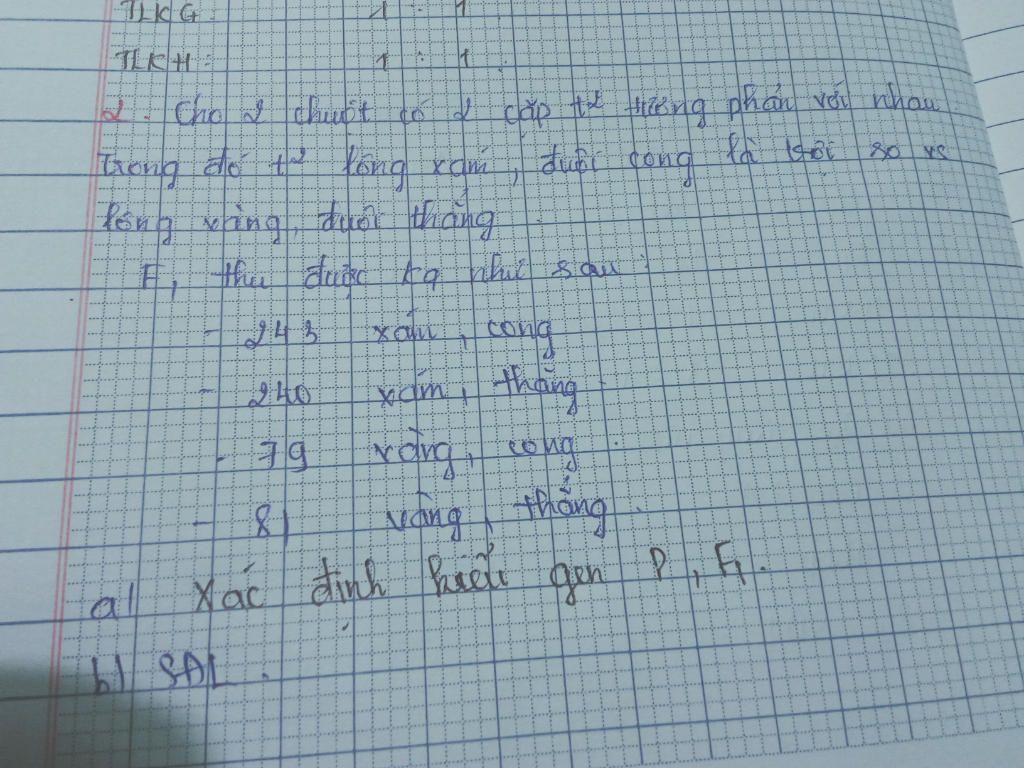 TLKG: 1 : 1
TLKH: 1 : 1
2. Cho 2 chuột có 2 cặp t² tương phản với nhau.
Trong đó t² lông xám, đuôi cong là trội so vs
lông vàng, đuôi thẳng.
F₁ thu được kq như sau:
- 243 xám, cong
- 240 xám, thẳng
- 79 vàng, cong.
- 81 vàng, thẳng.
a) Xác định kiểu gen P, F₁.
b) SĐL.